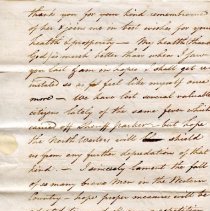 thank you for your kind remembrance
of her & joins me in best wishes for your
health & prosperity - My health thank
God is much better than when I saw
you last I am in hopes I shall get re-
instated so as to feel like myself once
more - We have lost several valuable
citizens lately of the same fever which
carried off but hope
the North Westers will shield
us from any further depredations of that
kind. - I sincerely lament the fall
of so many brave men in the Western
Country - hope proper measures will be